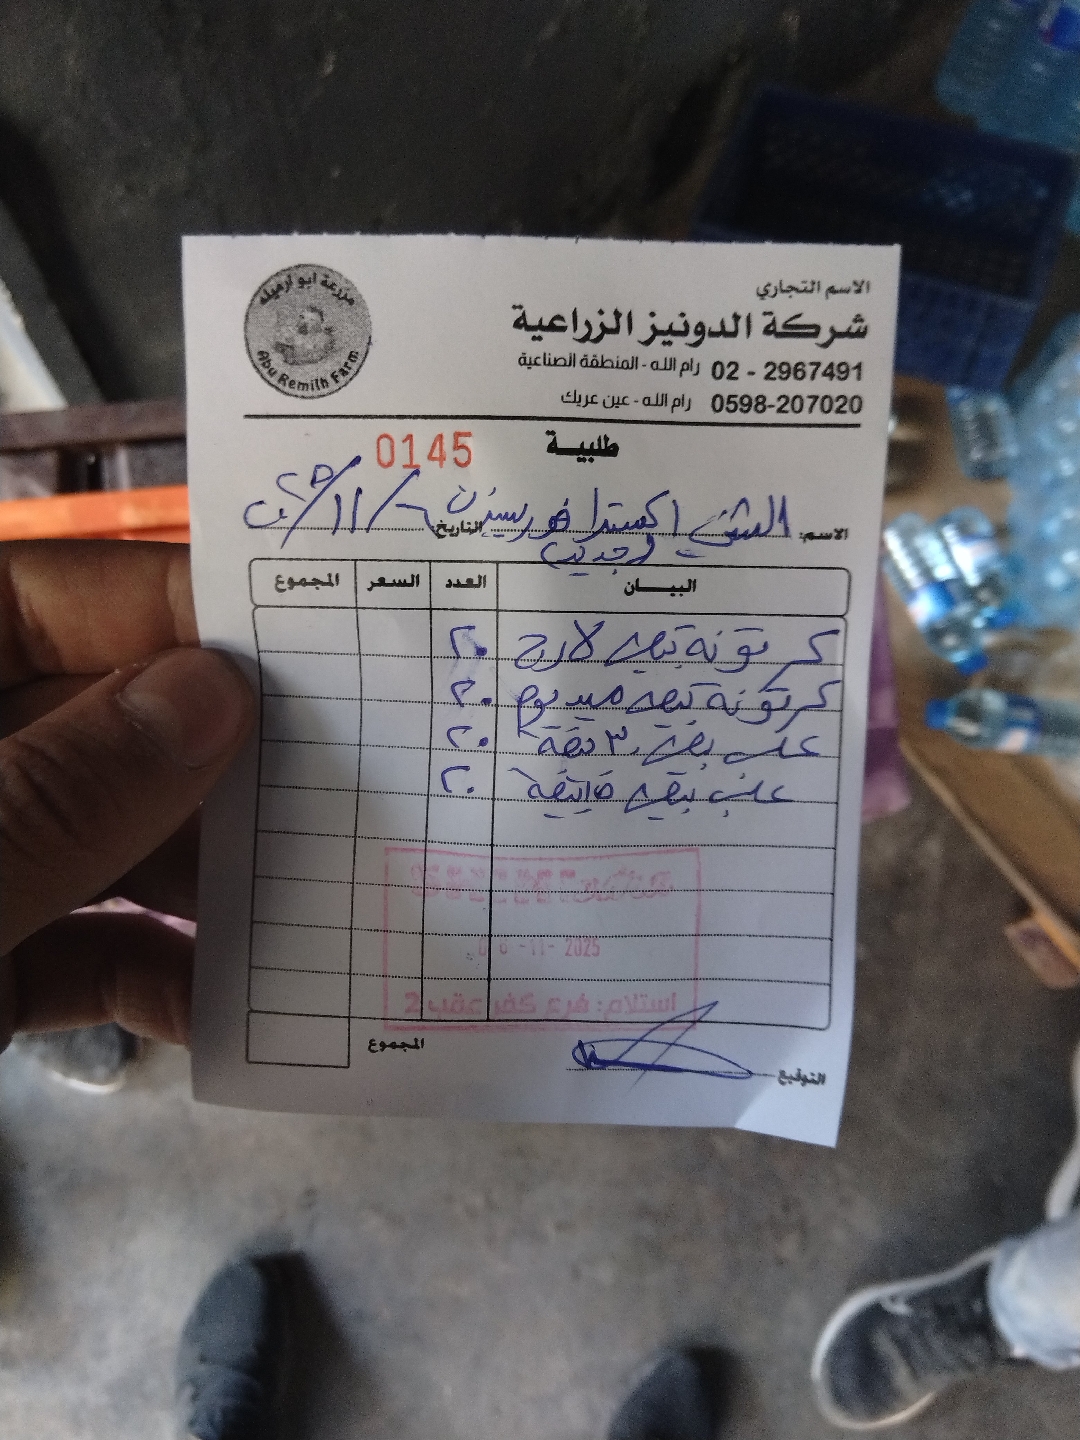 مزرعة ابو ارميله
Abu Remilh Farm
الاسم التجاري
شركة الدونيز الزراعية
02 - 2967491 رام الله - المنطقة الصناعية
0598-207020 رام الله - عين عريك
طلبية
0145
الاسم: الشني اكسترا فوريسيزن
التاريخ
البيان العدد السعر المجموع
كرتونة بيض لارج ٢٠
كرتونة بيض ميديوم ٢٠
علب بيض ٢٠
علب بيض ٢٠
-11- 2025
استلام: فرع كفر عقب 2
المجموع
التوقيع